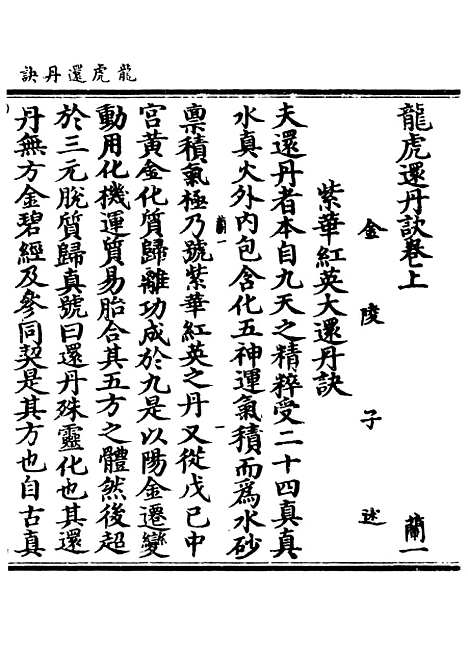 龍虎還丹訣
龍虎還丹訣卷上
蘭一
金陵子述
紫華紅英大還丹訣
夫還丹者本自九天之精粹受二十四真真
水真火外內包含化五神運氣積而為水砂
蘭一
稟積氣極乃號紫華紅英之丹又從戊己中
宮黃金化質歸離功成於九是以陽金遷變
動用化機運質易胎合其五方之體然後超
於三元脫質歸真號曰還丹殊靈化也其還
丹無方金碧經及參同契是其方也自古真